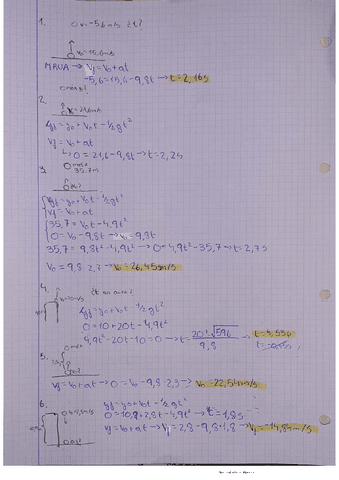 1.
v=-5,6m/s t?
v₀=15,6m/s
MRUA → Vf=V₀+at
-5,6=15,6-9,8t → t=2,16s
2.
Yf=y₀+V₀t-½gt²
Vf=V₀+at
↳0=21,6-9,8t→t=2,2s
3.
35,7m
Yf=y₀+V₀t-½gt²
Vf=V₀+at
35,7=V₀t-4,9t²
0=V₀-9,8t→V₀=9,8t
35,7=9,8t²-4,9t²→0=4,9t²-35,7→t=2,7s
V₀=9,8·2,7→V₀=26,45m/s
4.
Yf=y₀+V₀t-½gt²
0=10+20t-4,9t²
4,9t²-20t-10=0→t=20±√596/9,8
5.
Vf=V₀+at→0=V₀-9,8·2,3→V₀=22,54m/s
6.
Yf=y₀+V₀t-½gt²
0=10,9+2,8t-4,9t²→t=1,8s
Vf=V₀+at→Vf=2,8-9,8·1,8→Vf=-14,84m/s